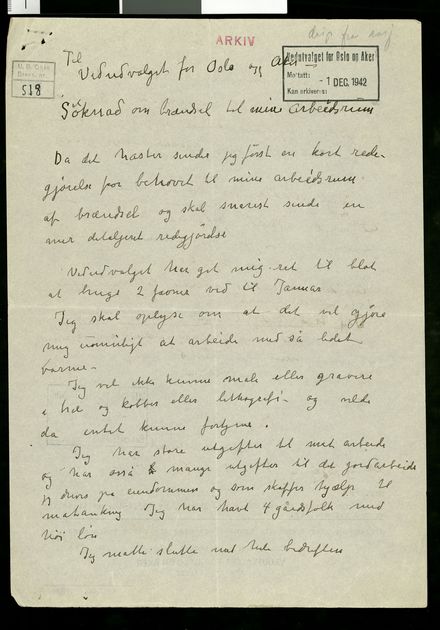 ARKIV
U. B. Oslo
518
Vedutvalget for Oslo og Aker
Mottatt:
- 1 DEC. 1942
Kan arkiveres:
Til
Vedudvalget for Oslo og Aker
Söknad om brændsel til mine arbeidsrum
Da det haster sender jeg först en kort rede-
gjörelse for behovet til mine arbeidsrum
af brændsel og skal snarest sende en
mer detaljeret redigjördse
Vedudvalget har get mig ret til blot
at bruge 2 favne ved til Januar
Jeg skal oplyse om at det vil gjöre
mig umuligt at arbeide med så lidet
varme.
Jeg vil ikke kunne male eller gravere
i træ og kobber eller lithografi og vilde
da intet kunne fortjene.
Jeg har store utgefter til mit arbeide
og har osså mange utgefter til det jordarbeide
drives på eiendommen og som skaffer hjælp til
matauking Jeg har havt 4 gårdsfolk med
höi lön
Jeg måtte slutte med hele bedriften